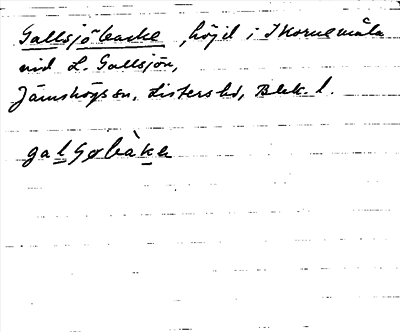 Gallsjöbacke, höjd i Skornemåla
vid L. Gallsjön,
Jämshögs sn, Listers hd, Blek. l.